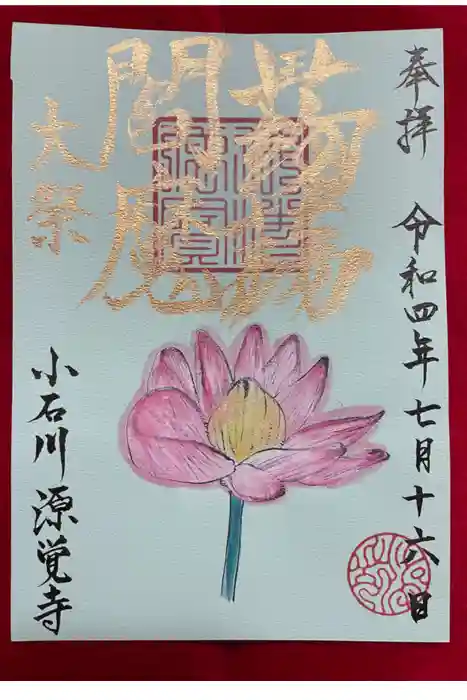 奉拝 令和四年七月十六日
蒟蒻
閻魔
大祭
小石川 源覚寺